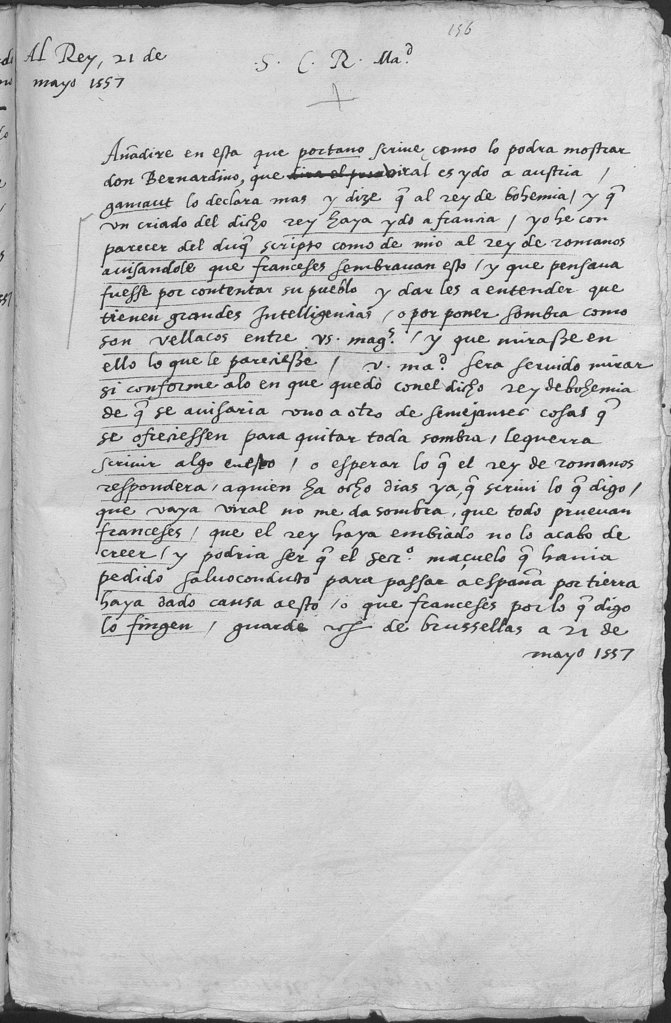 156
Al Rey, 21 de
mayo 1557
.S. C. R. Ma.d
Añadire en esta que portano scrive como lo podra mostrar
don Bernardino, que viral es ydo a austria /
gamiaut lo declara mas y dize q̃ al rey de bohemia / y q̃
vn criado del dicho rey haya ydo a francia / yo he con
parecer del duq̃ scripto como de mio al rey de romanos
auisandole que franceses sembrauan esto / y que pensaua
fuesse por contentar su pueblo y dar les a entender que
tienen grandes Intelligencias / o por poner sombra como
son vellacos entre vs. mag.s / y que mirasse en
ello lo que le pareciesse / v. ma.d sera seruido mirar
si conforme alo en que quedò conel dicho rey de bohemia
de q̃ se auisaria vno a otro de semejantes cosas q̃
se ofreciessen para quitar toda sombra / le querra
scriuir algo enesto / o esperar lo q̃ el rey de romanos
respondera / a quien ha ocho dias ya, q̃ scriui lo q̃ digo /
que vaya viral no me da sombra, que todo prueuan
franceses / que el rey haya embiado no lo acabo de
creer / y podria ser q̃ el secr.o maçuelo q̃ hauia
pedido saluoconducto para passar a españa por tierra
haya dado causa a esto / o que franceses por lo q̃ digo
lo fingen / guarde de brussellas a 21 de
mayo 1557